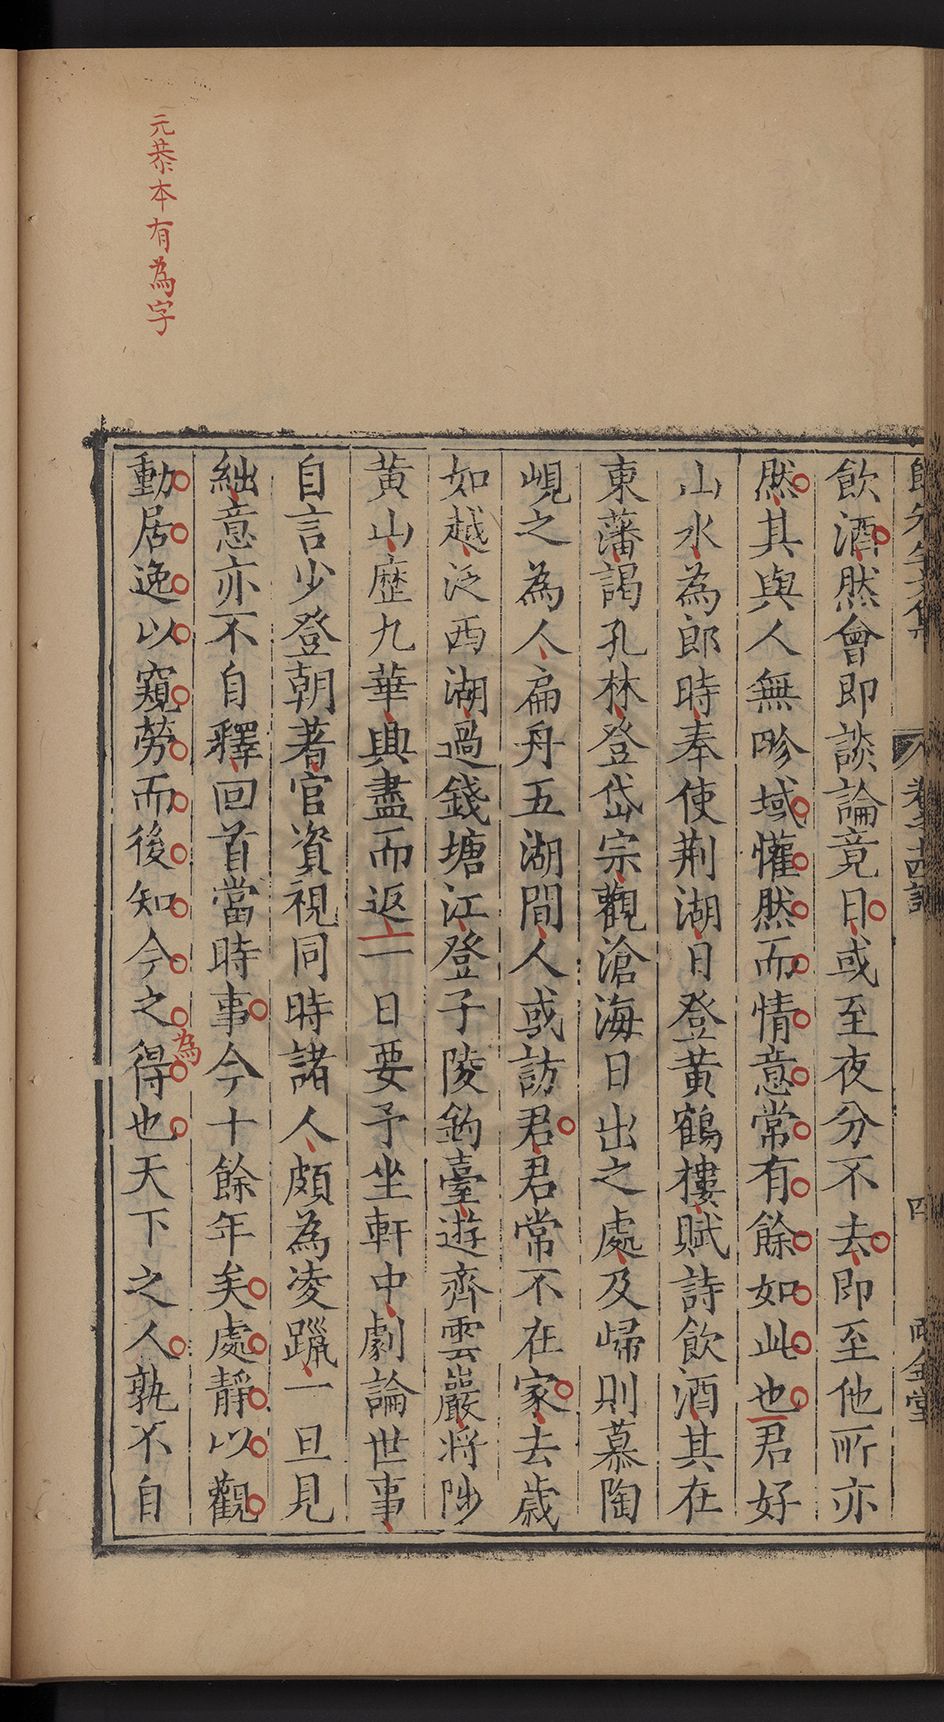 飲酒然會即談論竟日或至夜分不去即至他所亦
然其與人無畛域懽然而情意常有餘如此也君好
山水為郎時奉使荆湖日登黃鶴樓賦詩飲酒其在
東藩謁孔林登岱宗觀滄海日出之處及歸則慕陶
峴之為人扁舟五湖間人或訪君君常不在家去歲
如越泛西湖過錢塘江登子陵釣臺遊齊雲巖將陟
黃山歷九華興盡而返一日要予坐軒中劇論世事
自言少登朝著官資視同時諸人頗為凌躐一旦見
絀意亦不自釋回首當時事今十餘年矣處靜以觀
動居逸以窺勞而後知今之得也天下之人孰不自
為
元恭本有為字